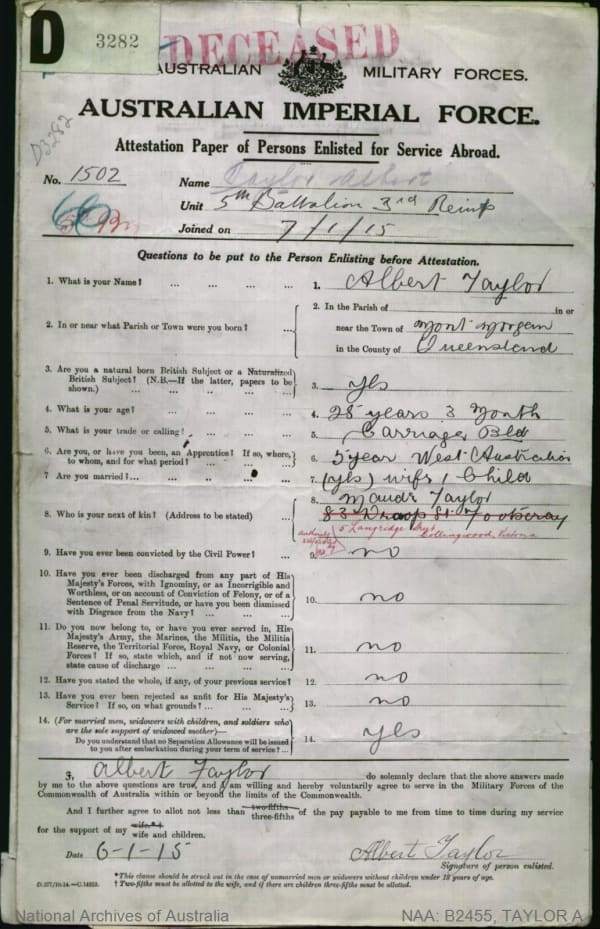 D
3282
DECEASED
AUSTRALIAN MILITARY FORCES.
AUSTRALIAN IMPERIAL FORCE.
Attestation Paper of Persons Enlisted for Service Abroad.
D3282
No. 1502
Name Taylor Albert
Unit 5th Battalion 3rd Reinf
Joined on 7/1/15
Questions to be put to the Person Enlisting before Attestation.
1. What is your Name? ... ... ... ... 1. Albert Taylor
2. In or near what Parish or Town were you born? ... 2. In the Parish of in or
near the Town of Mont Morgan
in the County of Queensland
3. Are you a natural born British Subject or a Naturalized
British Subject? (N.B.—If the latter, papers to be
shown.) ... ... ... ... 3. yes
4. What is your age? ... ... ... ... 4. 28 years 3 Month
5. What is your trade or calling? ... ... ... 5. Carriage Bld
6. Are you, or have you been, an Apprentice? If so, where,
to whom, and for what period? ... ... ... 6. 5 year West Australian
7 Are you married? ... ... ... ... 7. (yes) wife 1 Child
8. Who is your next of kin? (Address to be stated) ... 8. Maude Taylor
83 St. Footscray
5 Langridge Street Collingwood, Victoria
9. Have you ever been convicted by the Civil Power? ... 9. no
10. Have you ever been discharged from any part of His
Majesty's Forces, with Ignominy, or as Incorrigible and
Worthless, or on account of Conviction of Felony, or of a
Sentence of Penal Servitude, or have you been dismissed
with Disgrace from the Navy? ... ... ... 10. no
11. Do you now belong to, or have you ever served in, His
Majesty's Army, the Marines, the Militia, the Militia
Reserve, the Territorial Force, Royal Navy, or Colonial
Forces? If so, state which, and if not now serving,
state cause of discharge ... ... ... ... 11. no
12. Have you stated the whole, if any, of your previous service? 12. no
13. Have you ever been rejected as unfit for His Majesty's
Service? If so, on what grounds? ... ... ... 13. no
14. (For married men, widowers with children, and soldiers who
are the sole support of widowed mother)—
Do you understand that no Separation Allowance will be issued
to you after embarkation during your term of service? ... 14. yes
I, Albert Taylor do solemnly declare that the above answers made
by me to the above questions are true, and I am willing and hereby voluntarily agree to serve in the Military Forces of the
Commonwealth of Australia within or beyond the limits of the Commonwealth.
And I further agree to allot not less than two-fifths three-fifths of the pay payable to me from time to time during my service
for the support of my wife*† wife and children.
Date 6-1-15 Albert Taylor
Signature of person enlisted.
*This clause should be struck out in the case of unmarried men or widowers without children under 18 years of age.
D.277/10.14.—C.14959. † Two-fifths must be allotted to the wife, and if there are children three-fifths must be allotted.
National Archives of Australia NAA: B2455, TAYLOR A